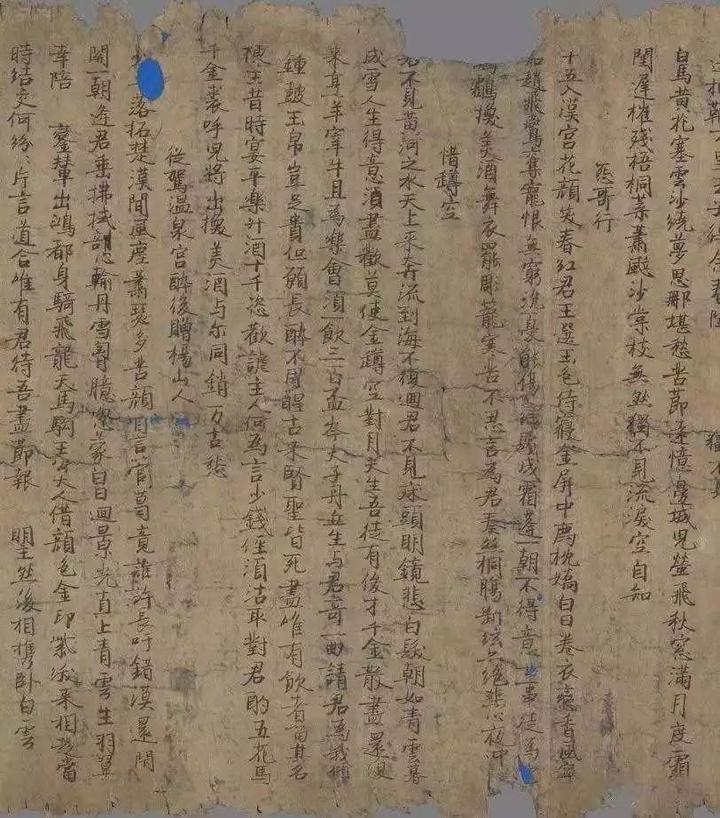 白馬黃花塞雲沙繞夢思那堪愁苦節遠憶邊城兒螢飛秋窓滿月度霜
閨遲摧殘梧桐葉蕭颯沙棠枝無然獨不見流淚空自知
怨哥行
十五入漢宮花顏笑春紅君王選玉色侍寢金屏中薦枕嬌白日卷衣戀香風寧
知趙飛鷰奪寵恨無窮沈憂能傷鬢成霜蓬一朝不得意世事徒為
鷫鸘換美酒舞衣罷彫蘢寒苦不忍言為君奏絲桐腸斷弦亦絕悲心夜忡
惜罇空
君不見黃河之水天上來奔流到海不復迴君不見床頭明鏡悲白髮朝如青雲暮
成雪人生得意須盡歡莫使金罇空對月天生吾徒有俊才千金散盡還復
來亨羊宰牛且為樂會須飲三百盃岑夫子丹丘生与君哥一曲請君為我傾
鍾鼓玉帛豈足貴但願長醉不用醒古來賢聖皆死盡唯有飲者留其名
陳王昔時宴平樂斗酒十千恣歡謔主人何為言少錢徑須沽取對君酌五花馬
千金裘呼兒將出換美酒与尔同銷万古愁
從駕溫泉宮醉後贈楊山人
落拓楚漢間風塵蕭瑟多苦顏自言管葛竟誰許長吁錯漠還閉
關一朝逢君垂拂拭輸丹雪胸臆忽蒙白日迴景光直上青雲生羽翼
幸陪 鑾輦出鴻都身騎飛龍天馬駒王公大人借顏色金印紫綬來相趨當
時結交何紛〻片言道合唯有君待吾盡節報 明主然後相攜臥白雲